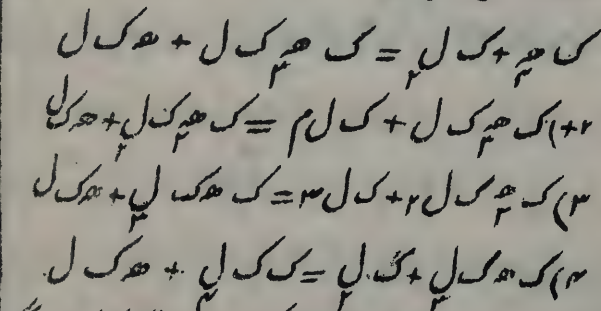 ک ھ۲ + ک ل۲ = ک ھ۳ ک ل + ھ ک ل
۲+) ک ھ۳ ک ل + ک ل م = ک ھ۳ ک ل۲ + ھ ک ل
۳) ک ھ۲ ک ل ۲ + ک ل ۳ = ک ھ ک ل۳ + ھ ک ل
۴) ک ھ ک ل۳ + ک ل۲ = ک ک ل۴ + ھ ک ل